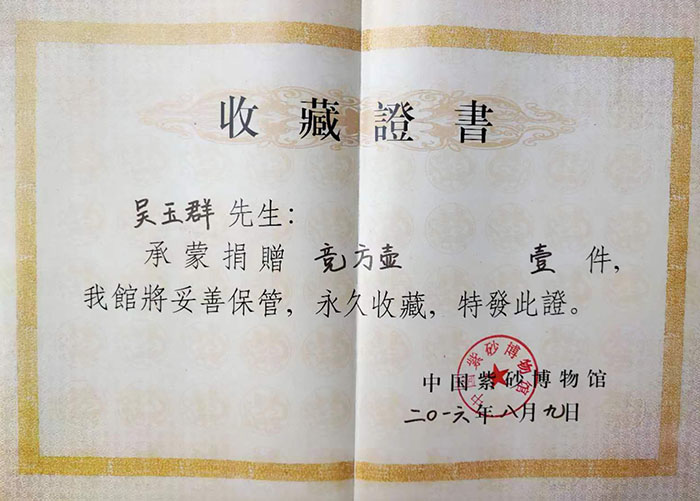 收藏證書
吴玉群先生：
承蒙捐贈 竞方壶 壹件，
我館將妥善保管，永久收藏，特發此證。
中国紫砂博物馆
中国紫砂博物馆
二〇一六年八月九日